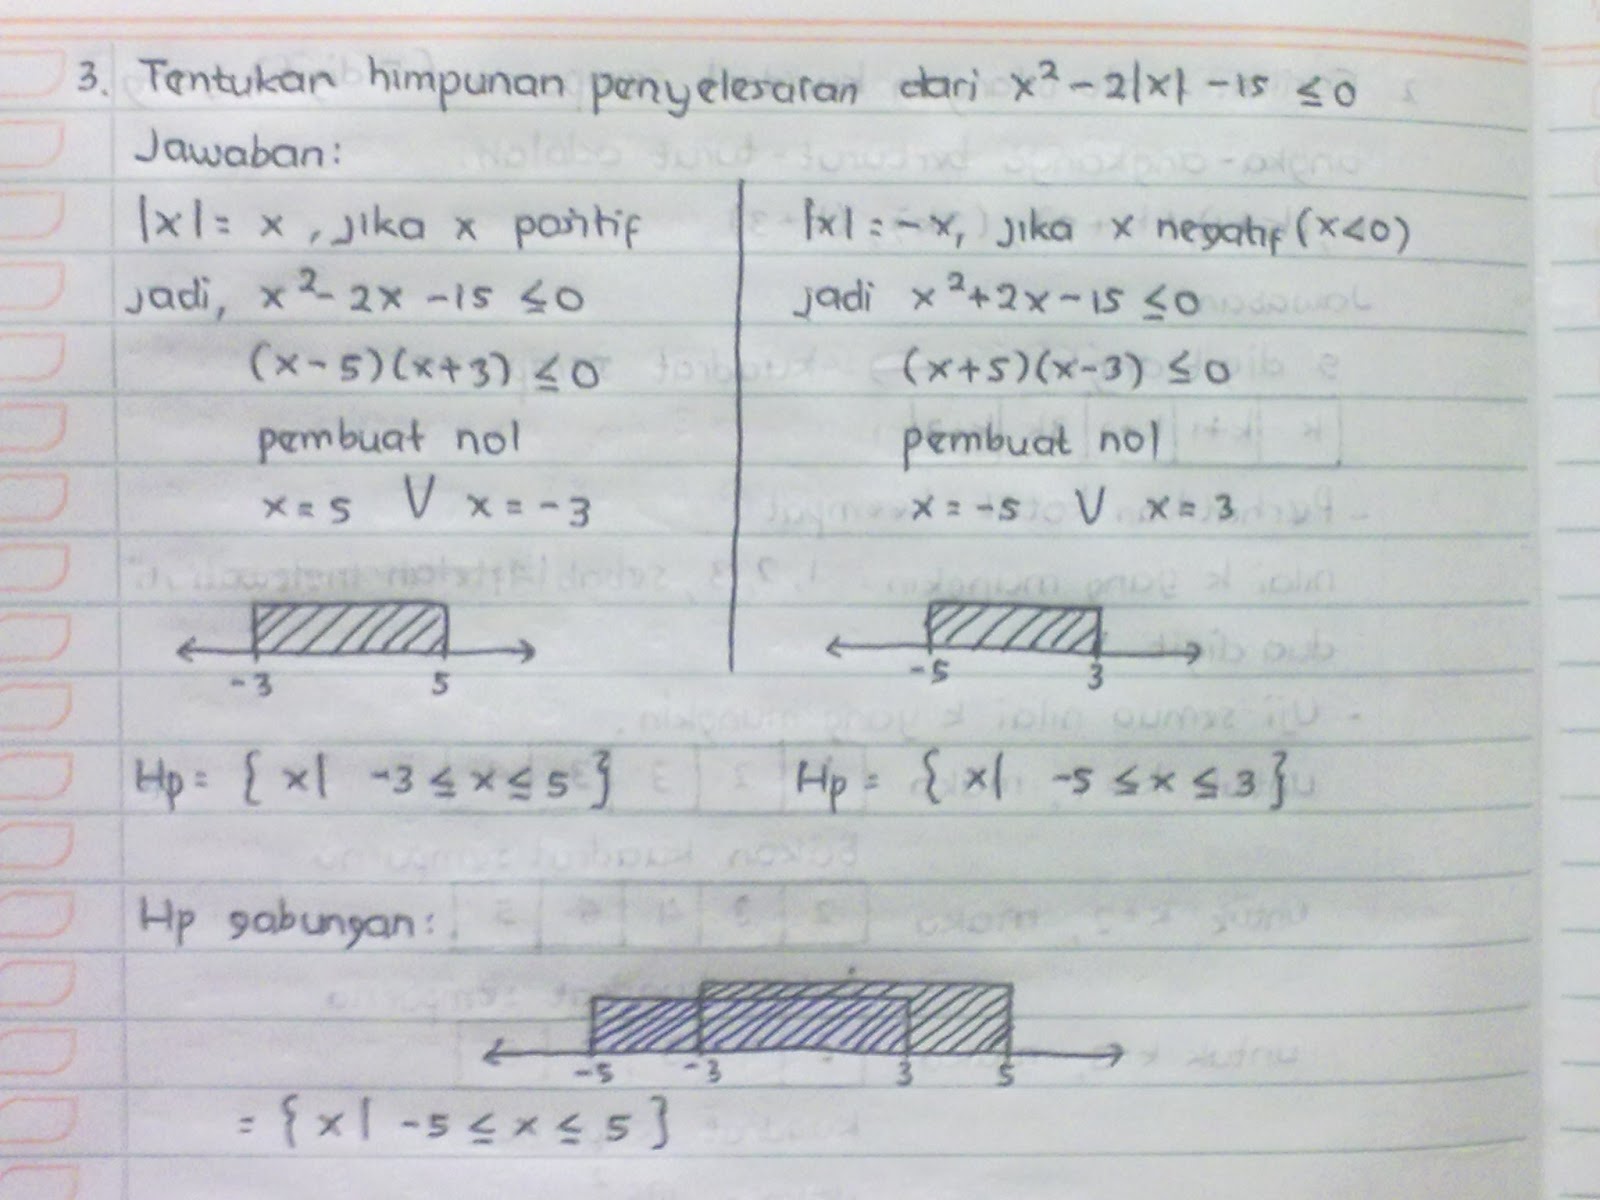 3. Tentukan himpunan penyelesaian dari x² - 2|x| - 15 ≤ 0
Jawaban:
|x| = x , jika x positif
jadi, x² - 2x - 15 ≤ 0
(x - 5)(x + 3) ≤ 0
pembuat nol
x = 5 V x = -3
-3 5
Hp = { x | -3 ≤ x ≤ 5 }
|x| = -x, jika x negatif (x<0)
jadi x² + 2x - 15 ≤ 0
(x+5)(x-3) ≤ 0
pembuat nol
x = -5 V x = 3
-5 3
Hp = { x | -5 ≤ x ≤ 3 }
Hp gabungan:
-5 -3 3 5
= { x | -5 ≤ x ≤ 5 }